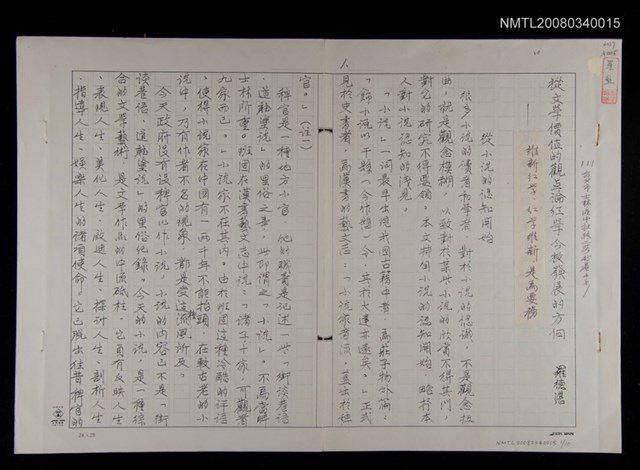 NMTL20080340015
從文學價值的觀點論紅學今後發展的方向
——維新紅學,紅學維新是為要務
羅德湛
從小說的認知開始
很多小說的讀者和學者,對於小說的認識,不是觀念扭
曲,就是觀念模糊,以致對於某些小說的欣賞不得其門,
對它的研究不得要領。本文擬由小說的認知開始,略抒本
人對小說認知的淺見。
「小說」一詞最早出現我國古籍中者,為莊子物外篇:
「飾小說以干縣(令作懸)令,其於大達亦遠矣。」正式
見於史書者,為漢書藝文志:「小說家者流,蓋出於稗
1.
官。」(註一)
稗官是一種地方小官,他的職責是記述一些「街談巷語
、道聽塗說」的里俗之事,此即謂之「小說」。不為當時
士林所重。班固在漢書藝文志中說:「諸子十家,可觀者
九家而已。」小說家不在其內。由於班固這種冷酷的評語
,使得小說家在中國有一兩千年不能抬頭,在較古老的小
說中,乃有作者不名的現象,都是受這種流風所及。
今天政府沒有設稗官,小說的內容已不是「街
談巷語、道聽塗說」的里俗紀錄。今天的小說,是一種綜
合的文學藝術,是文學作品的中流砥柱,它負有反映人生
、表現人生、美化人生、啟迪人生、探討人生、剖析人生
、指導人生、娛樂人生的諸項使命,它已脫出往昔稗官的
24×25
NMTL20080340015, 1/10